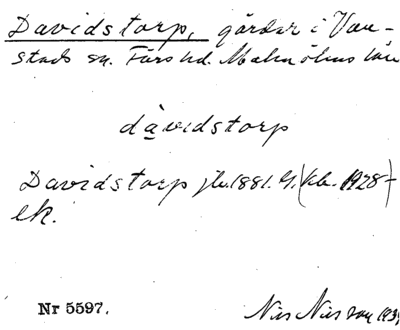 Davidstorp, gårdar i Van-
stads sn. Färs hd. Malmöhus län
dàvidstorp
Davidstorp jb. 1881. G. (kb. 1928-)
ek.
Nr 5597. Nils Nilsson 193